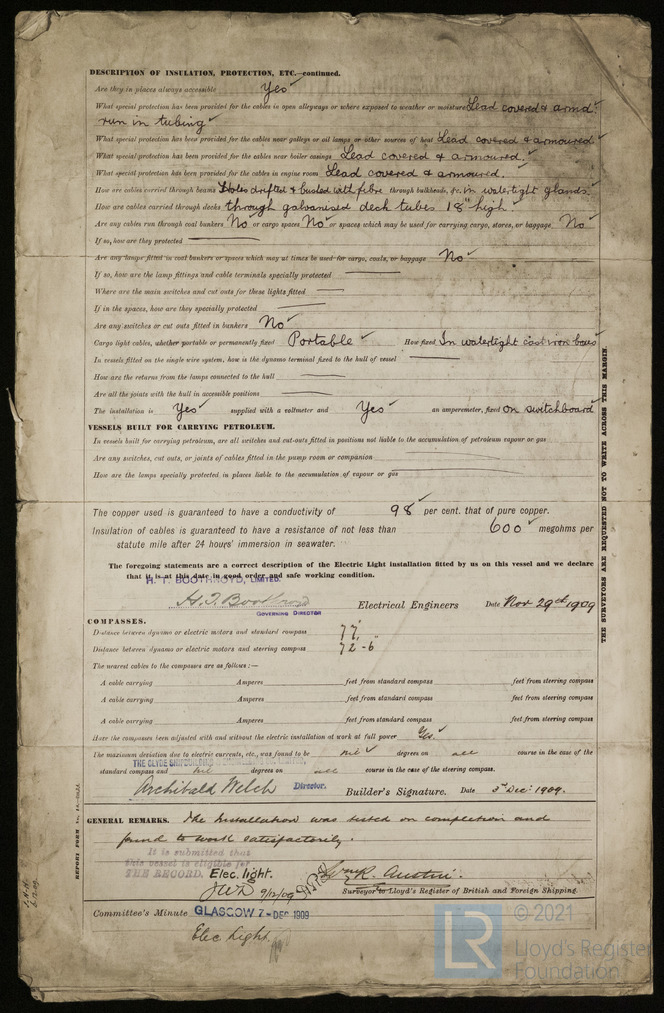 DESCRIPTION OF INSULATION, PROTECTION, ETC.—continued.
Are they in places always accessible Yes ✓
What special protection has been provided for the cables in open alleyways or where exposed to weather or moisture Lead covered & armd.
run in tubing ✓
What special protection has been provided for the cables near galleys or oil lamps or other sources of heat Lead covered & armoured. ✓
What special protection has been provided for the cables near boiler casings Lead covered & armoured. ✓
What special protection has been provided for the cables in engine room Lead covered & armoured. ✓
How are cables carried through beams Holes drifted & bushed with fibre through bulkheads, &c. in watertight glands. ✓
How are cables carried through decks through galvanised deck tubes 18" high. ✓
Are any cables run through coal bunkers No ✓ or cargo spaces No ✓ or spaces which may be used for carrying cargo, stores, or baggage No ✓
If so, how are they protected
Are any lamps fitted in coal bunkers or spaces which may at times be used for cargo, coals, or baggage No ✓
If so, how are the lamp fittings and cable terminals specially protected
Where are the main switches and cut outs for these lights fitted
If in the spaces, how are they specially protected
Are any switches or cut outs fitted in bunkers No ✓
Cargo light cables, whether portable or permanently fixed Portable ✓ How fixed In watertight cast iron boxes ✓
In vessels fitted on the single wire system, how is the dynamo terminal fixed to the hull of vessel
How are the returns from the lamps connected to the hull
Are all the joints with the hull in accessible positions
The installation is Yes ✓ supplied with a voltmeter and Yes ✓ an amperemeter, fixed on switchboard ✓
VESSELS BUILT FOR CARRYING PETROLEUM.
In vessels built for carrying petroleum, are all switches and cut-outs fitted in positions not liable to the accumulation of petroleum vapour or gas
Are any switches, cut outs, or joints of cables fitted in the pump room or companion
How are the lamps specially protected in places liable to the accumulation of vapour or gas
The copper used is guaranteed to have a conductivity of 98 ✓ per cent. that of pure copper.
Insulation of cables is guaranteed to have a resistance of not less than 600 ✓ megohms per
statute mile after 24 hours' immersion in seawater.
The foregoing statements are a correct description of the Electric Light installation fitted by us on this vessel and we declare
that it is at this date in good order and safe working condition.
H. T. BOOTHROYD, LIMITED.
H. T. Boothroyd Electrical Engineers Date Nov 29th 1909
GOVERNING DIRECTOR
COMPASSES.
Distance between dynamo or electric motors and standard compass 77'
Distance between dynamo or electric motors and steering compass 72'-6"
The nearest cables to the compasses are as follows:—
A cable carrying Amperes feet from standard compass feet from steering compass
A cable carrying Amperes feet from standard compass feet from steering compass
A cable carrying Amperes feet from standard compass feet from steering compass
Have the compasses been adjusted with and without the electric installation at work at full power Yes ✓
The maximum deviation due to electric currents, etc., was found to be nil ✓ degrees on all course in the case of the
THE CLYDE SHIPBUILDING
standard compass and nil degrees on all course in the case of the steering compass.
Archibald Welch Director. Builder's Signature. Date 3rd Dec: 1909.
GENERAL REMARKS. The Installation was tested on completion and
found to work satisfactorily.
It is submitted that
this vessel is eligible for
THE RECORD. Elec. light.
9/12/09 Wm R. Austin.
Surveyor to Lloyd's Register of British and Foreign Shipping.
Committee's Minute GLASGOW 7 - DEC. 1909
Elec Light
THE SURVEYORS ARE REQUESTED NOT TO WRITE ACROSS THIS MARGIN.
LR © 2021
Lloyd's Register
Foundation